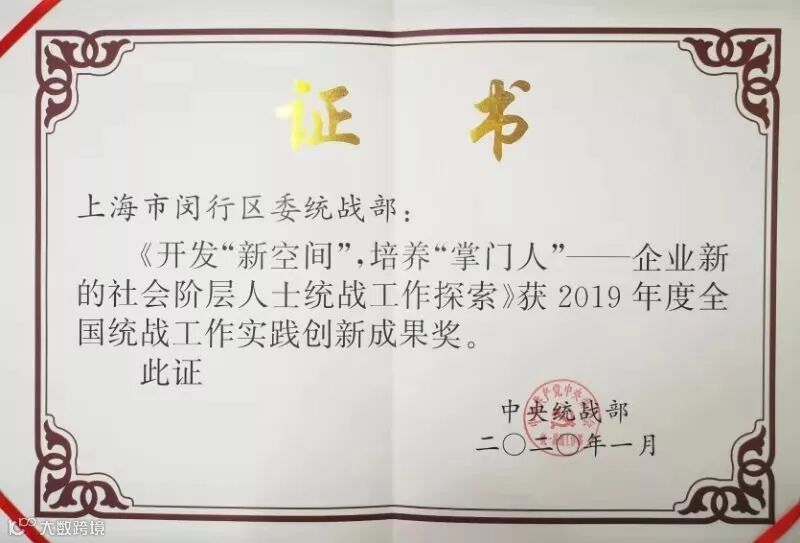 证 书
上海市闵行区委统战部：
《开发“新空间”，培养“掌门人”——企业新
的社会阶层人士统战工作探索》获 2019 年度全
国统战工作实践创新成果奖。
此证
中央统战部
二〇二〇年一月
大数跨境